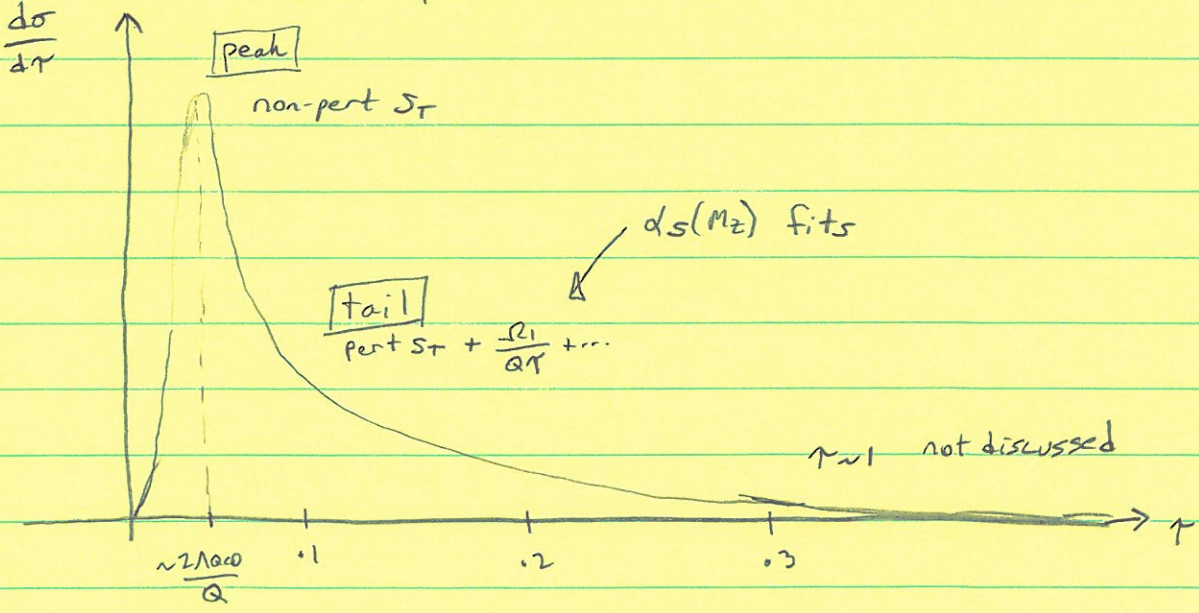 dσ/dτ
peak
non-pert S_T
α_s(M_Z) fits
tail
pert S_T + Ω_1/Qτ + ...
τ~1 not discussed
τ
~2Λ_QCD/Q
.1
.2
.3